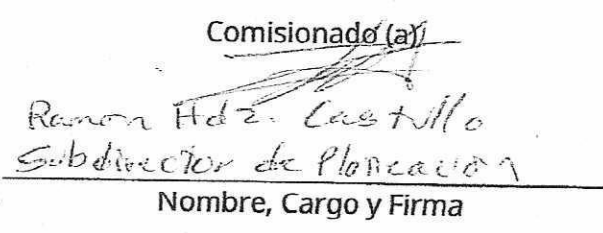 Comisionado (a)
Ramon Hdz. Castillo
Subdirector de Planeación
Nombre, Cargo y Firma